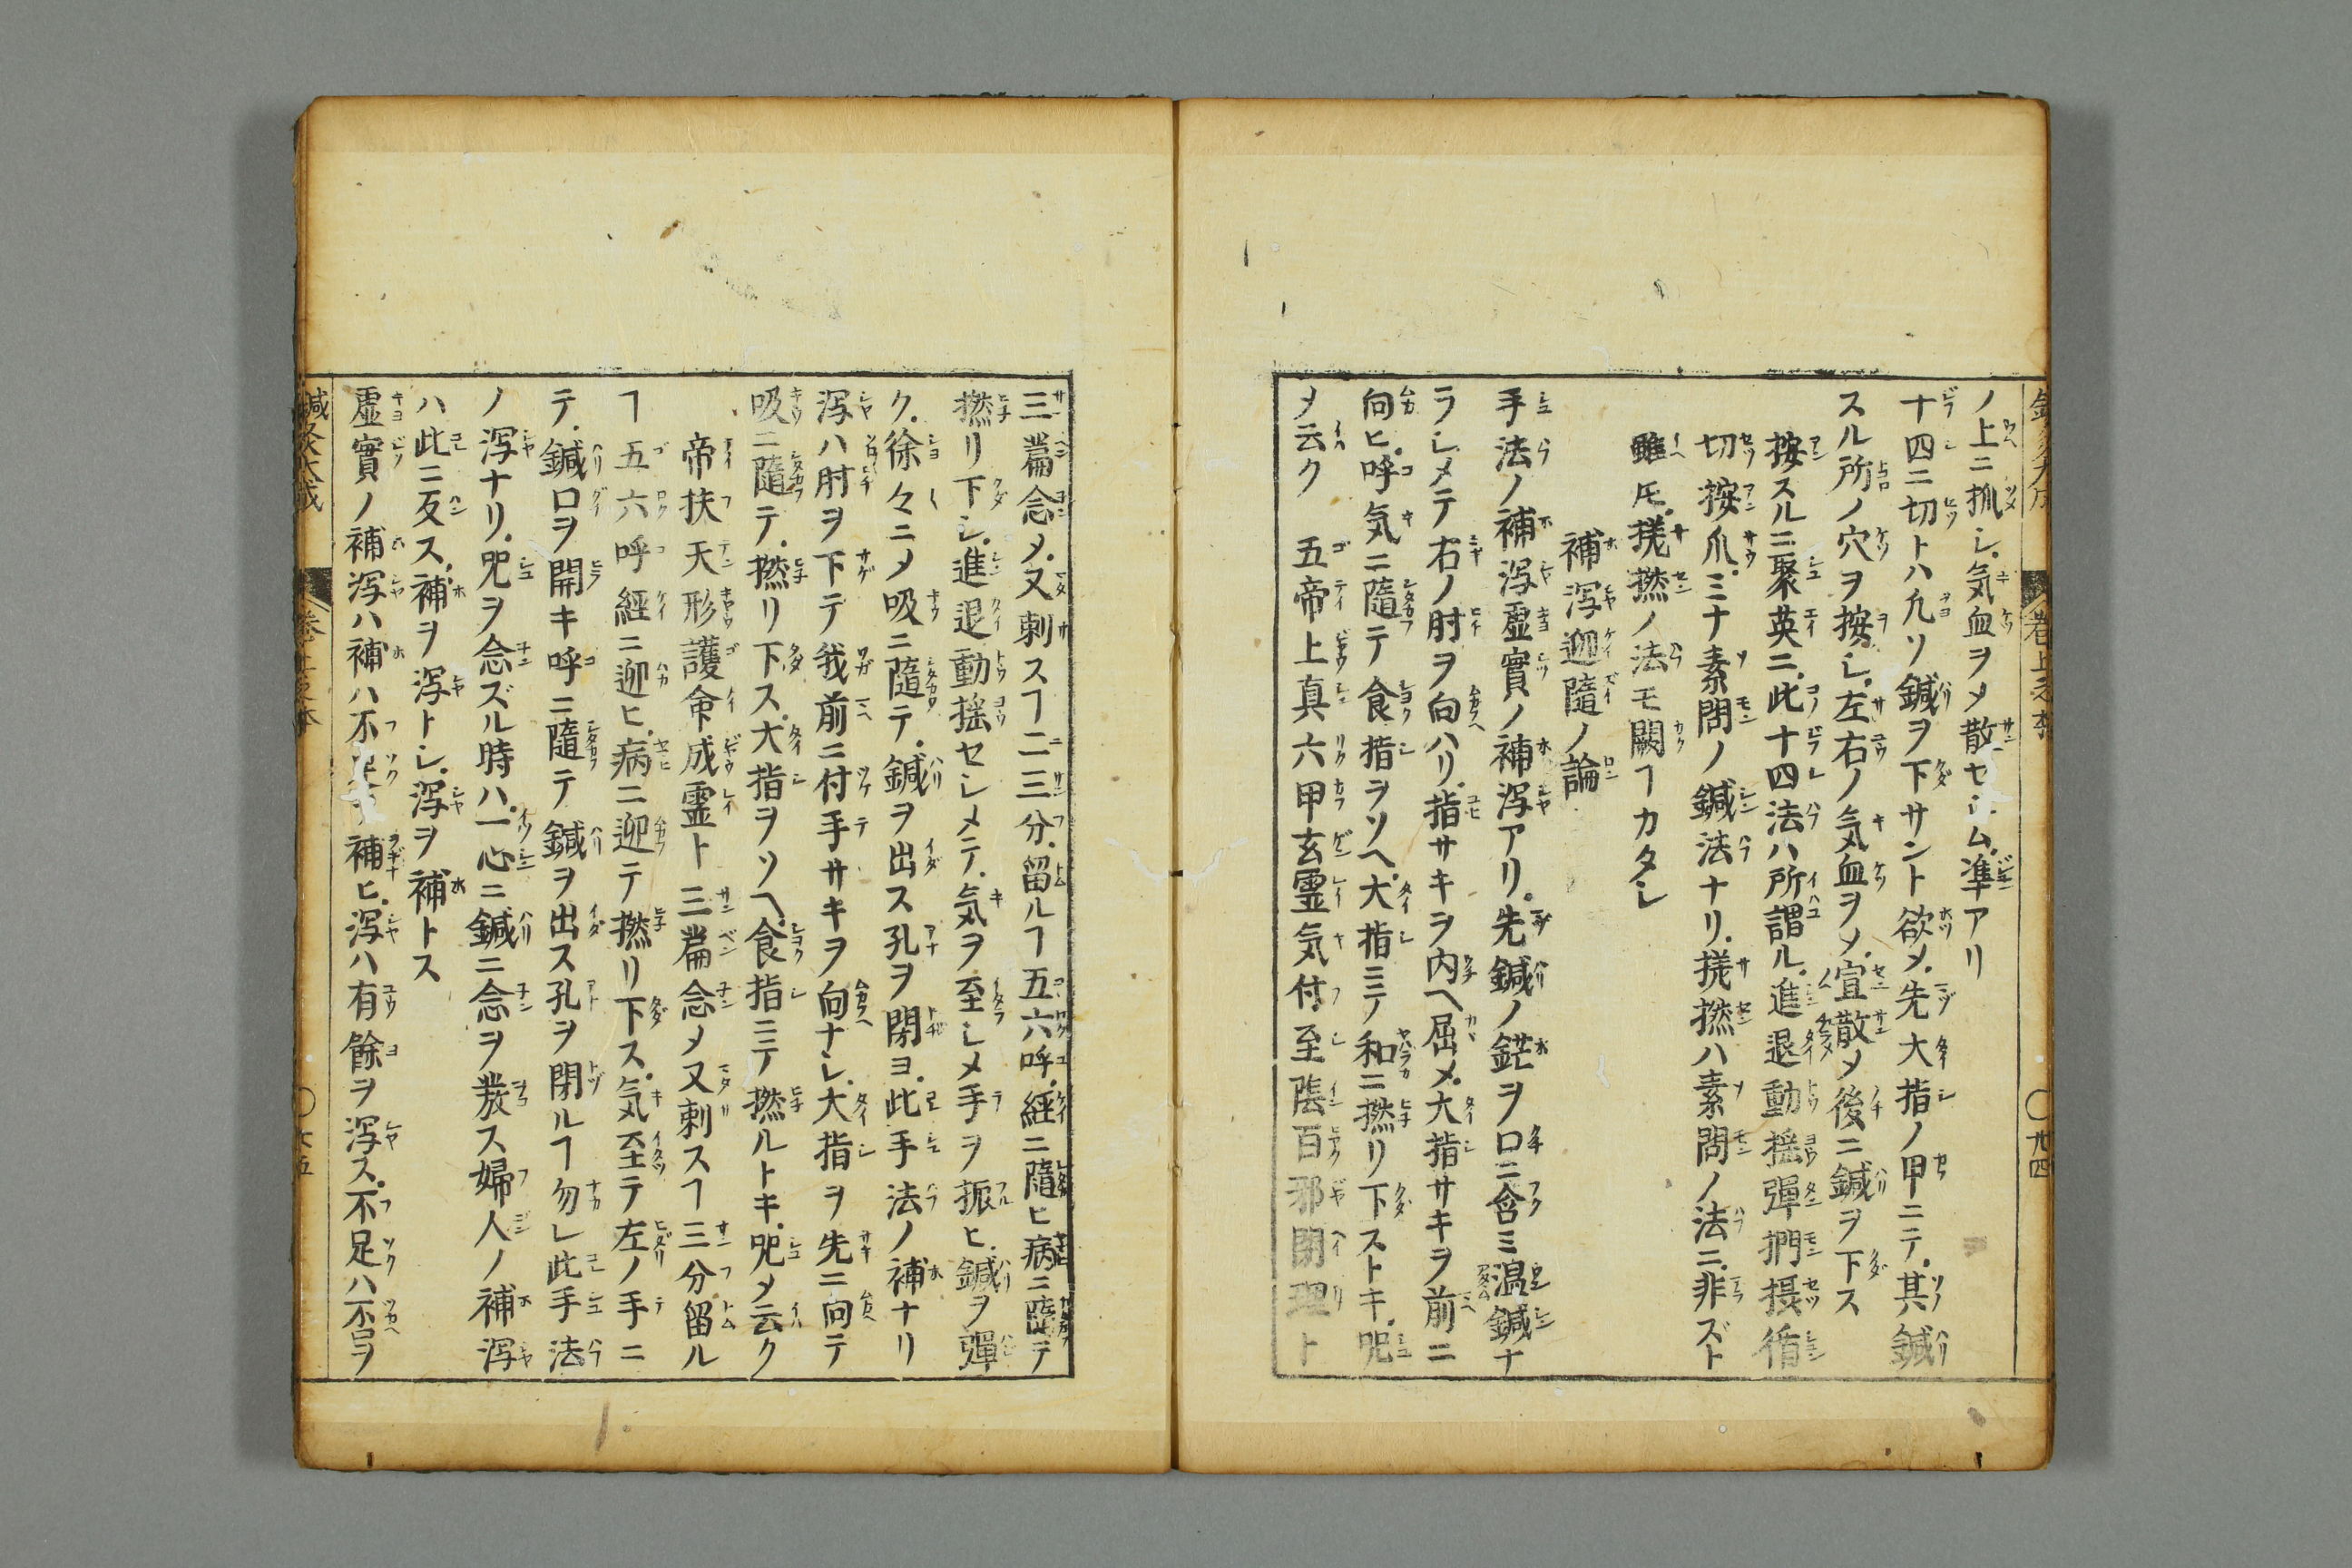 ノ上ニ抓シ.気血ヲメ散セシム.準アリ
十四ニ切トハ凢ソ鍼ヲ下サント欲メ.先大指ノ甲ニテ.其鍼
スル所ノ穴ヲ按シ.左右ノ気血ヲメ.宣散メ後ニ鍼ヲ下ス
按スルニ聚英ニ.此十四法ハ所謂ル.進退動揺彈捫摂循
切按爪.ミナ素問ノ鍼法ナリ.搓撚ハ素問ノ法ニ.非ズト
雖𪜈.搓撚ノ法モ闕ヿカタシ
補瀉迎隨ノ論
手法ノ補瀉虚實ノ補瀉アリ.先鍼ノ鋩ヲ口ニ含ミ温鍼ナ
ラシメテ右ノ肘ヲ向ハリ.指サキヲ内ヘ屈メ.大指サキヲ前ニ
向ヒ.呼気ニ隨テ食指ヲソヘ.大指ミテ和ニ撚リ下ストキ.呪
メ云ク 五帝上真六甲玄霊気付至陰百邪閉理ト
三篇念メ.又刺スヿ二三分.留ルヿ五六呼.經ニ隨ヒ病ニ隨テ
撚リ下シ.進退動揺セシメテ.気ヲ至シメ手ヲ振ヒ.鍼ヲ彈
ク.徐々ニメ吸ニ隨テ.鍼ヲ出ス孔ヲ閉ヨ.此手法ノ補ナリ
瀉ハ肘ヲ下デ我前ニ付手サキヲ向ナシ.大指ヲ先ニ向テ
吸ニ隨テ.撚リ下ス.大指ヲソヘ.食指ミテ撚ルトキ.呪メ云ク
帝扶天形護命成霊ト三篇念メ又刺スヿ三分留ル
ヿ五六呼經ニ迎ヒ.病ニ迎テ撚リ下ス.気至テ左ノ手ニ
テ.鍼口ヲ開キ呼ニ隨テ鍼ヲ出ス孔ヲ閉ルヿ勿レ此手法
ノ瀉ナリ.呪ヲ念ズル時ハ.一心ニ鍼ニ念ヲ發ス婦人ノ補瀉
ハ此ニ反ス.補ヲ瀉トシ.瀉ヲ補トス
虚實ノ補瀉ハ補ハ不足ヲ補ヒ.瀉ハ有餘ヲ瀉ス.不足ハ不
鍼灸大成